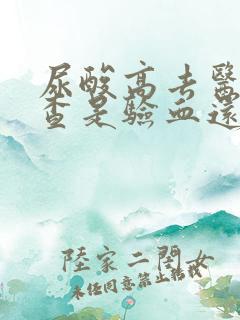 尿酸高去醫
查是驗血還
陸家二閨女
未经同意禁止转载